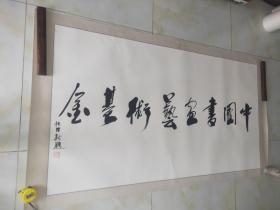 中國書畫藝術基金